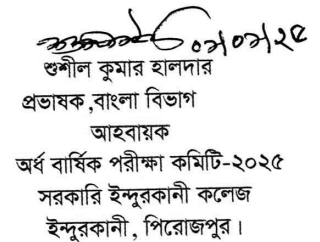 ০৯/০৯/২৫
শুশীল কুমার হালদার
প্রভাষক,বাংলা বিভাগ
আহবায়ক
অর্ধ বার্ষিক পরীক্ষা কমিটি-২০২৫
সরকারি ইন্দুরকানী কলেজ
ইন্দুরকানী, পিরোজপুর।